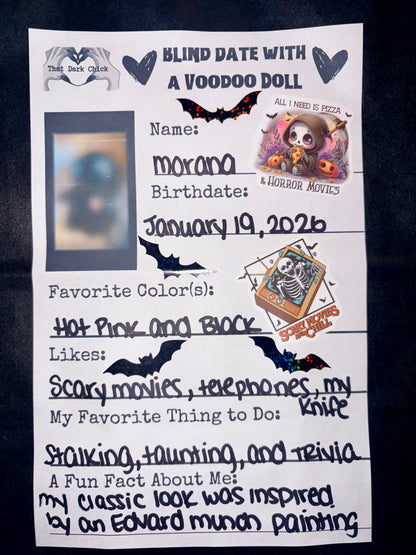 That Dark Chick
BLIND DATE WITH
A VOODOO DOLL
ALL I NEED IS PIZZA
& HORROR MOVIES
Name:
morana
Birthdate:
January 19, 2026
Favorite Color(s):
Hot Pink and Black
SCARY MOVIES
AND CHILL
Likes:
Scary movies, telephones, my
Knife
My Favorite Thing to Do:
Stalking, taunting, and Trivia
A Fun Fact About Me:
my classic look was inspired
by an Edvard munch painting